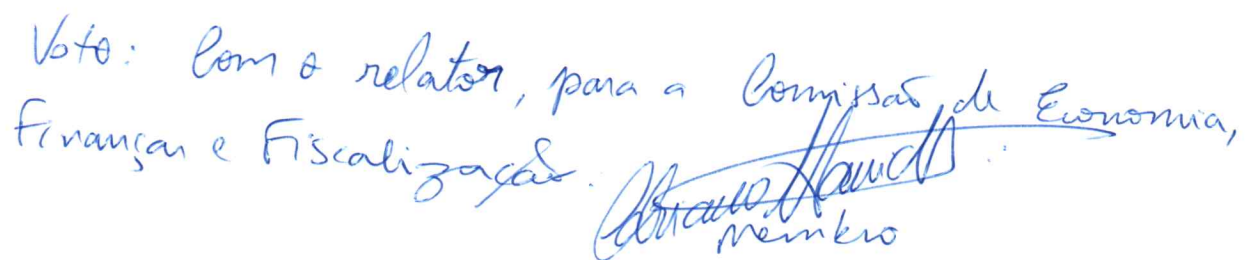 Voto: Com o relator, para a Comissão de Economia,
Finanças e Fiscalização.
Membro